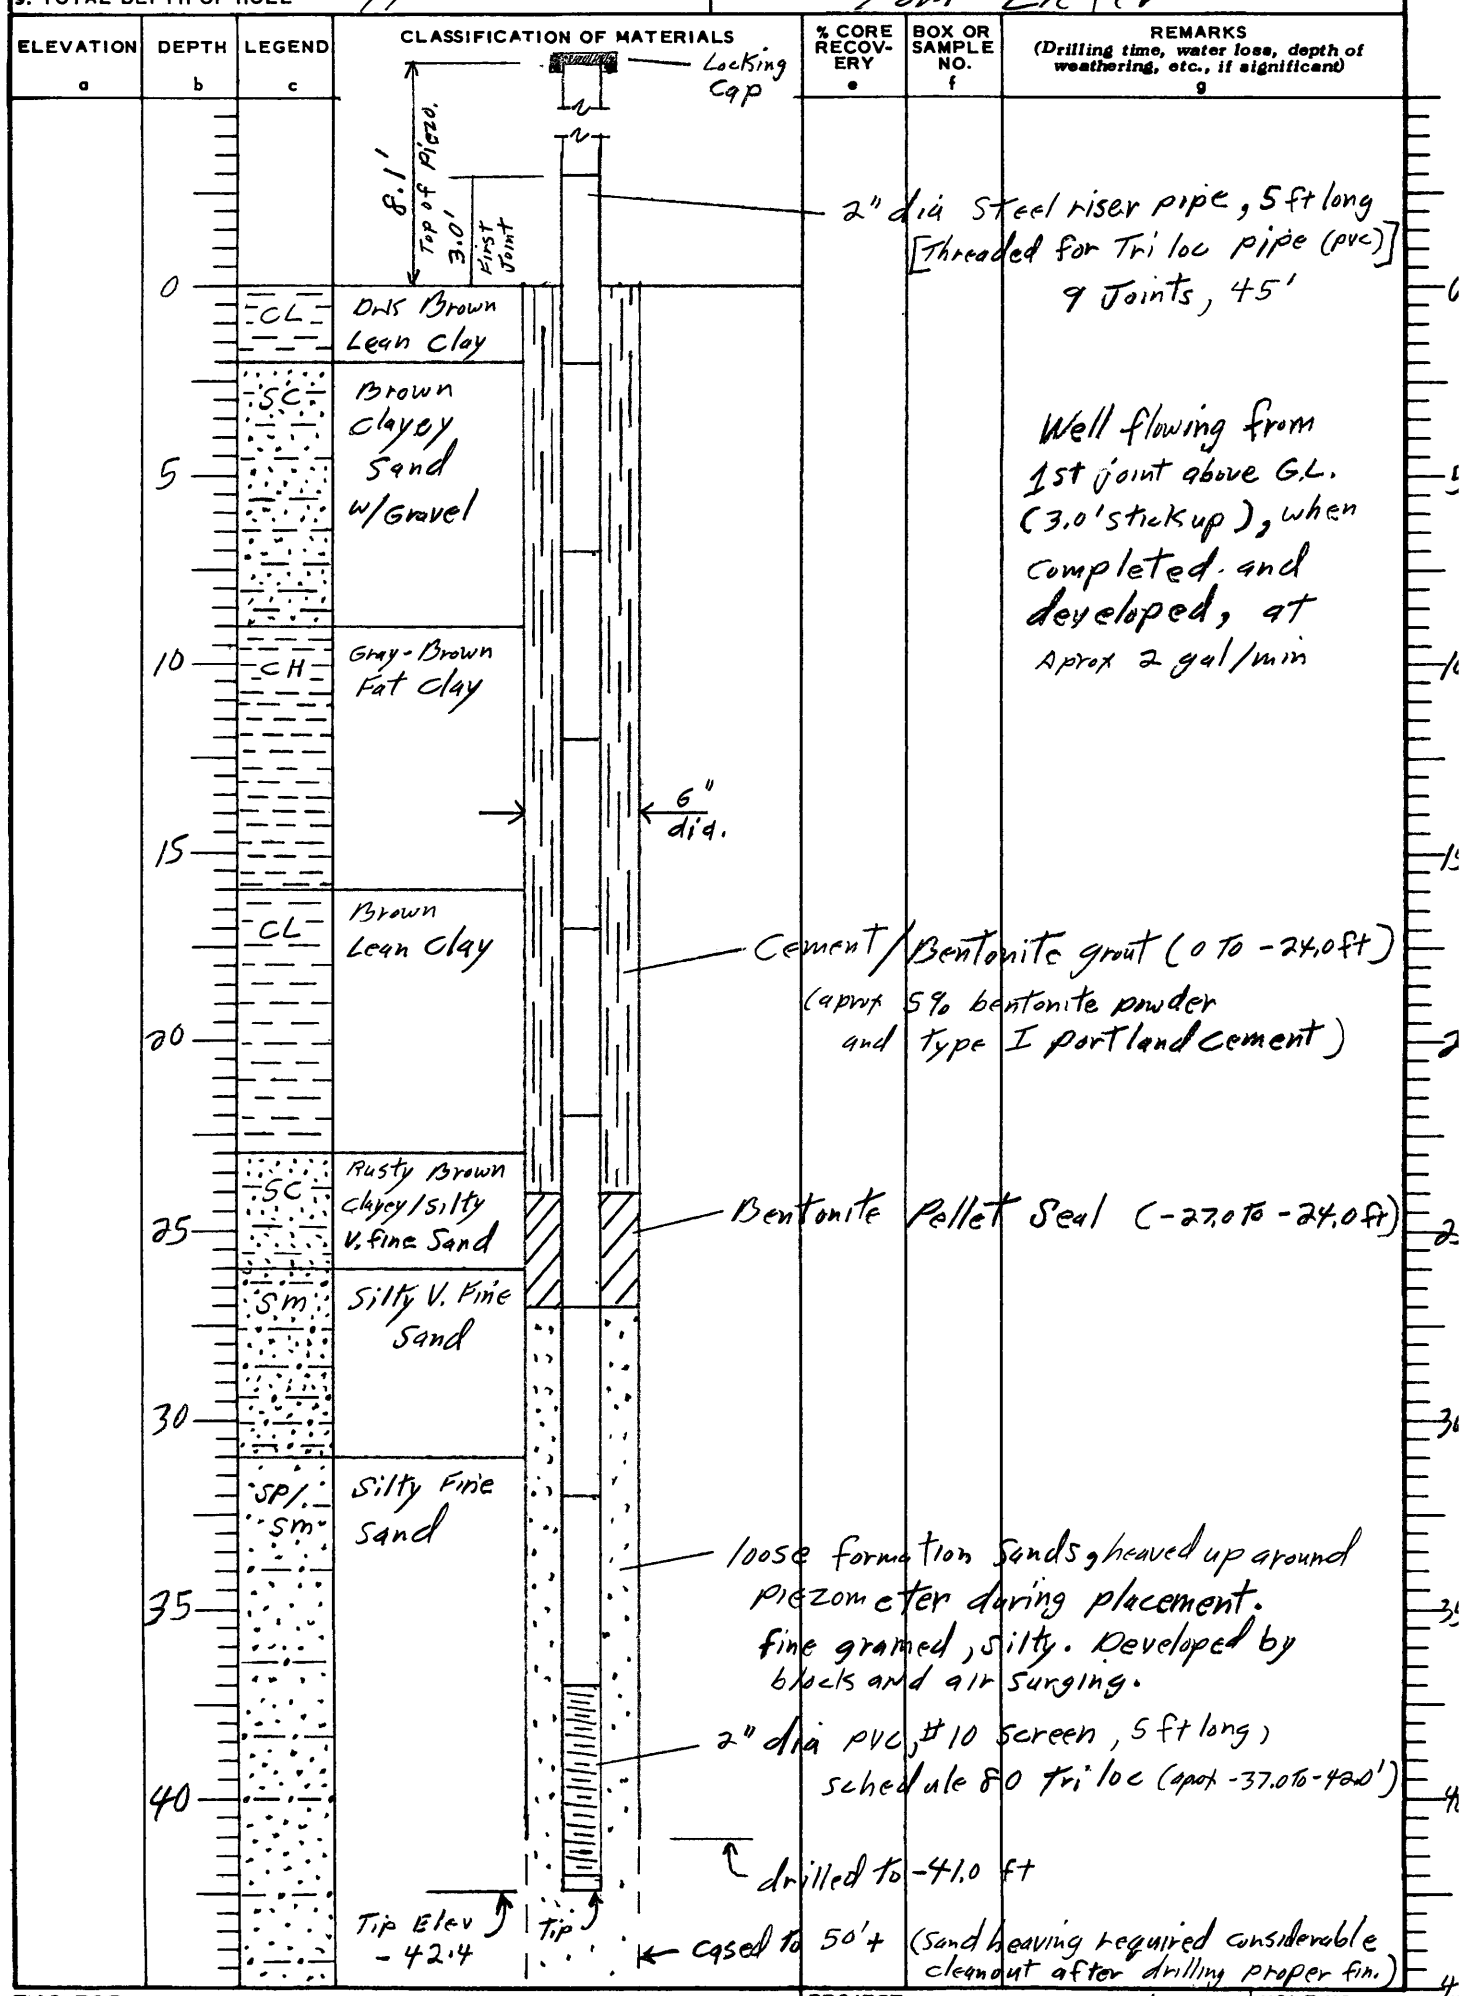 9. TOTAL DEPTH OF HOLE
ELEVATION DEPTH LEGEND CLASSIFICATION OF MATERIALS % CORE RECOV- ERY BOX OR SAMPLE NO. REMARKS
(Drilling time, water loss, depth of
weathering, etc., if significant)
a b c e f g
Locking
Cap
8.1'
Top of Piezo.
3.0'
First
Joint
2" dia Steel riser pipe, 5 ft long
[Threaded for Tri loc pipe (pvc)]
9 Joints, 45'
0
CL
Drk Brown
Lean Clay
SC
Brown
Clayey
Sand
w/Gravel
5
Well flowing from
1st joint above G.L.
(3.0' stick up), when
completed and
developed, at
Aprox 2 gal/min
10
CH
Gray-Brown
Fat Clay
6"
dia.
15
CL
Brown
Lean Clay
Cement/Bentonite grout (0 To -24.0ft)
(aprox 5% bentonite powder
and type I portland cement)
20
SC
Rusty Brown
Clayey/Silty
V. fine Sand
25
Bentonite Pellet Seal (-27.0 to -24.0 ft)
Sm
Silty V. Fine
Sand
30
SP/
Sm
Silty Fine
Sand
loose formation Sands, heaved up around
piezometer during placement.
fine grained, silty. Developed by
block and air surging.
35
2" dia PVC, #10 screen, 5 ft long,
schedule 80 Tri loc (apox -37.0 to -42.0')
40
drilled to -41.0 ft
Tip Elev
-42.4
Tip
cased to 50'+ (Sand heaving required considerable
cleanout after drilling proper fin.)